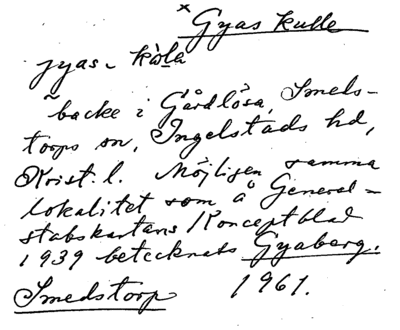 × Gyas kulle
jyas- kùla
~backe i Gårdlösa, Smeds-
torps sn, Ingelstads hd,
Krist. l. Möjligen samma
lokalitet som å General-
stabskartans Konceptblad
1939 betecknats Gyaberg.
Smedstorp 1961.